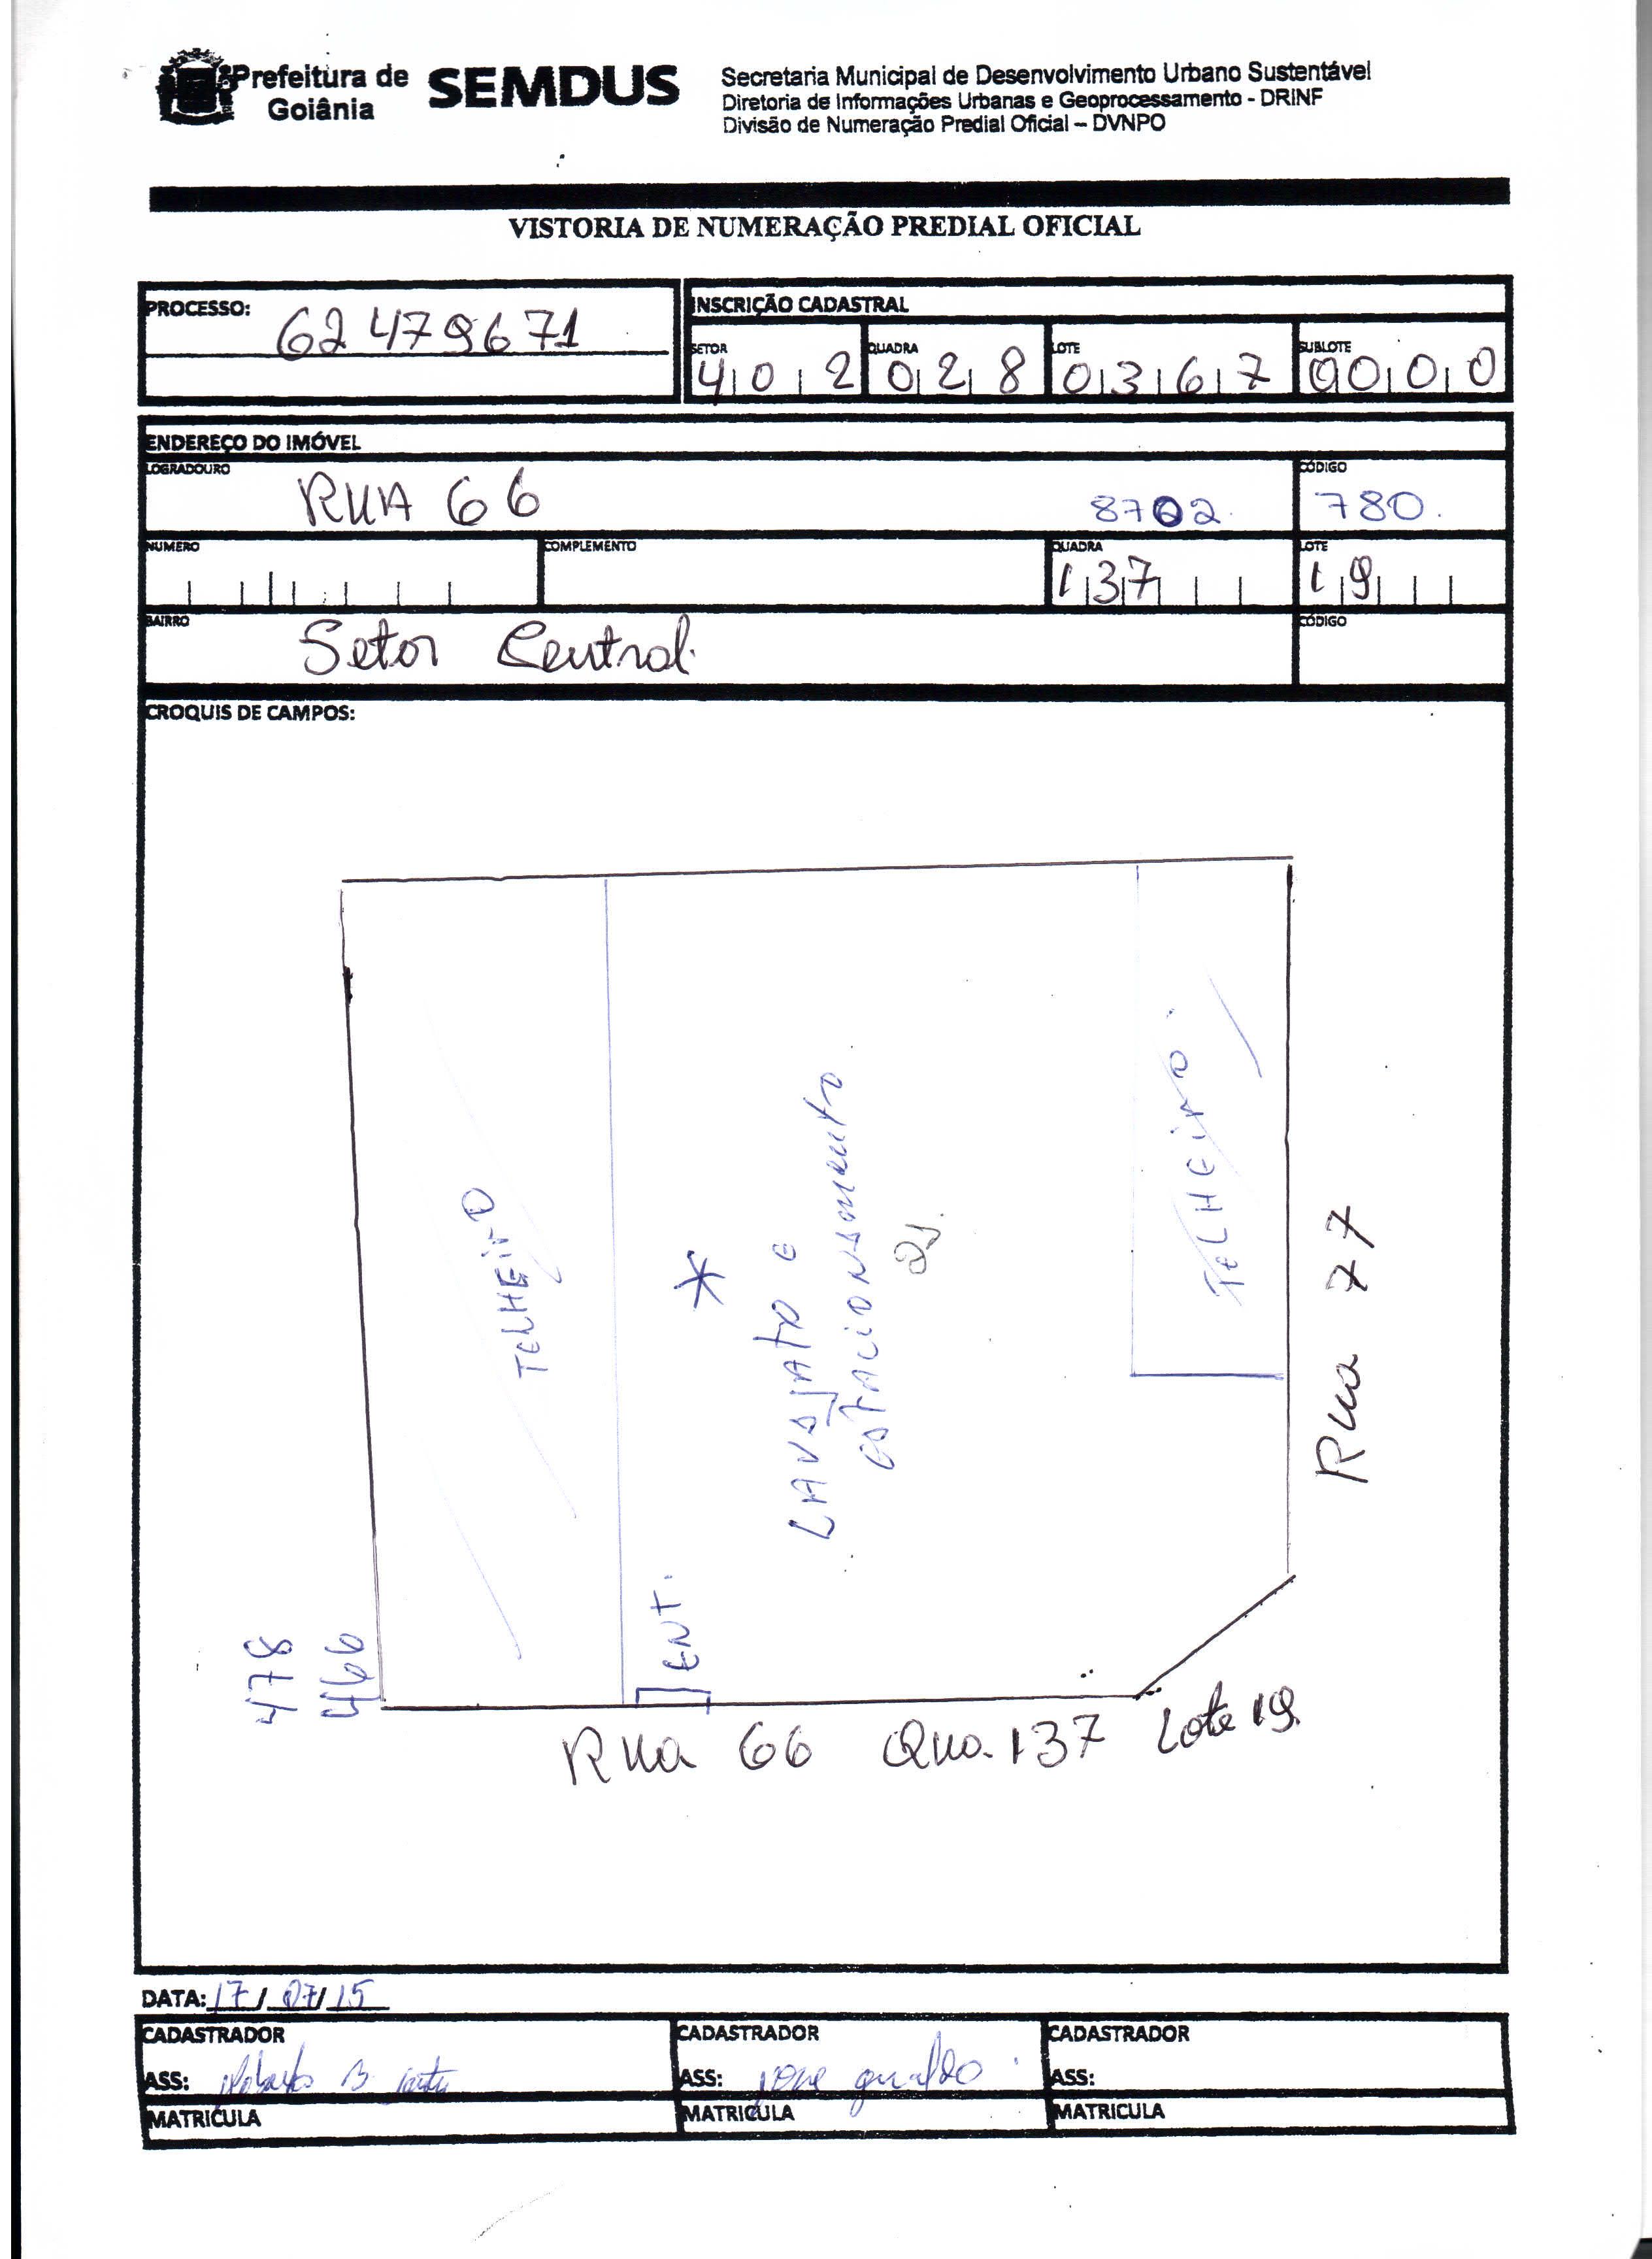 Prefeitura de Goiânia
SEMDUS
Secretaria Municipal de Desenvolvimento Urbano Sustentável
Diretoria de Informações Urbanas e Geoprocessamento - DRINF
Divisão de Numeração Predial Oficial – DVNPO
VISTORIA DE NUMERAÇÃO PREDIAL OFICIAL
PROCESSO: 62479671
INSCRIÇÃO CADASTRAL
SETOR 402 QUADRA 028 LOTE 0367 SUBLOTE 0000
ENDEREÇO DO IMÓVEL
LOGRADOURO RUA 66 8702. CÓDIGO 780.
NUMERO COMPLEMENTO QUADRA 137 LOTE 19
BAIRRO Setor Central. CÓDIGO
CROQUIS DE CAMPOS:
TELHEIRO
*
LAVAJATO E
ESTACIONAMENTO
TELHEIRO.
Rua 77
478
466
ENT.
Rua 66 Qua. 137 Lote 19.
DATA: 17/07/15
CADASTRADOR CADASTRADOR CADASTRADOR
ASS: ASS: ASS:
MATRICULA MATRICULA MATRICULA